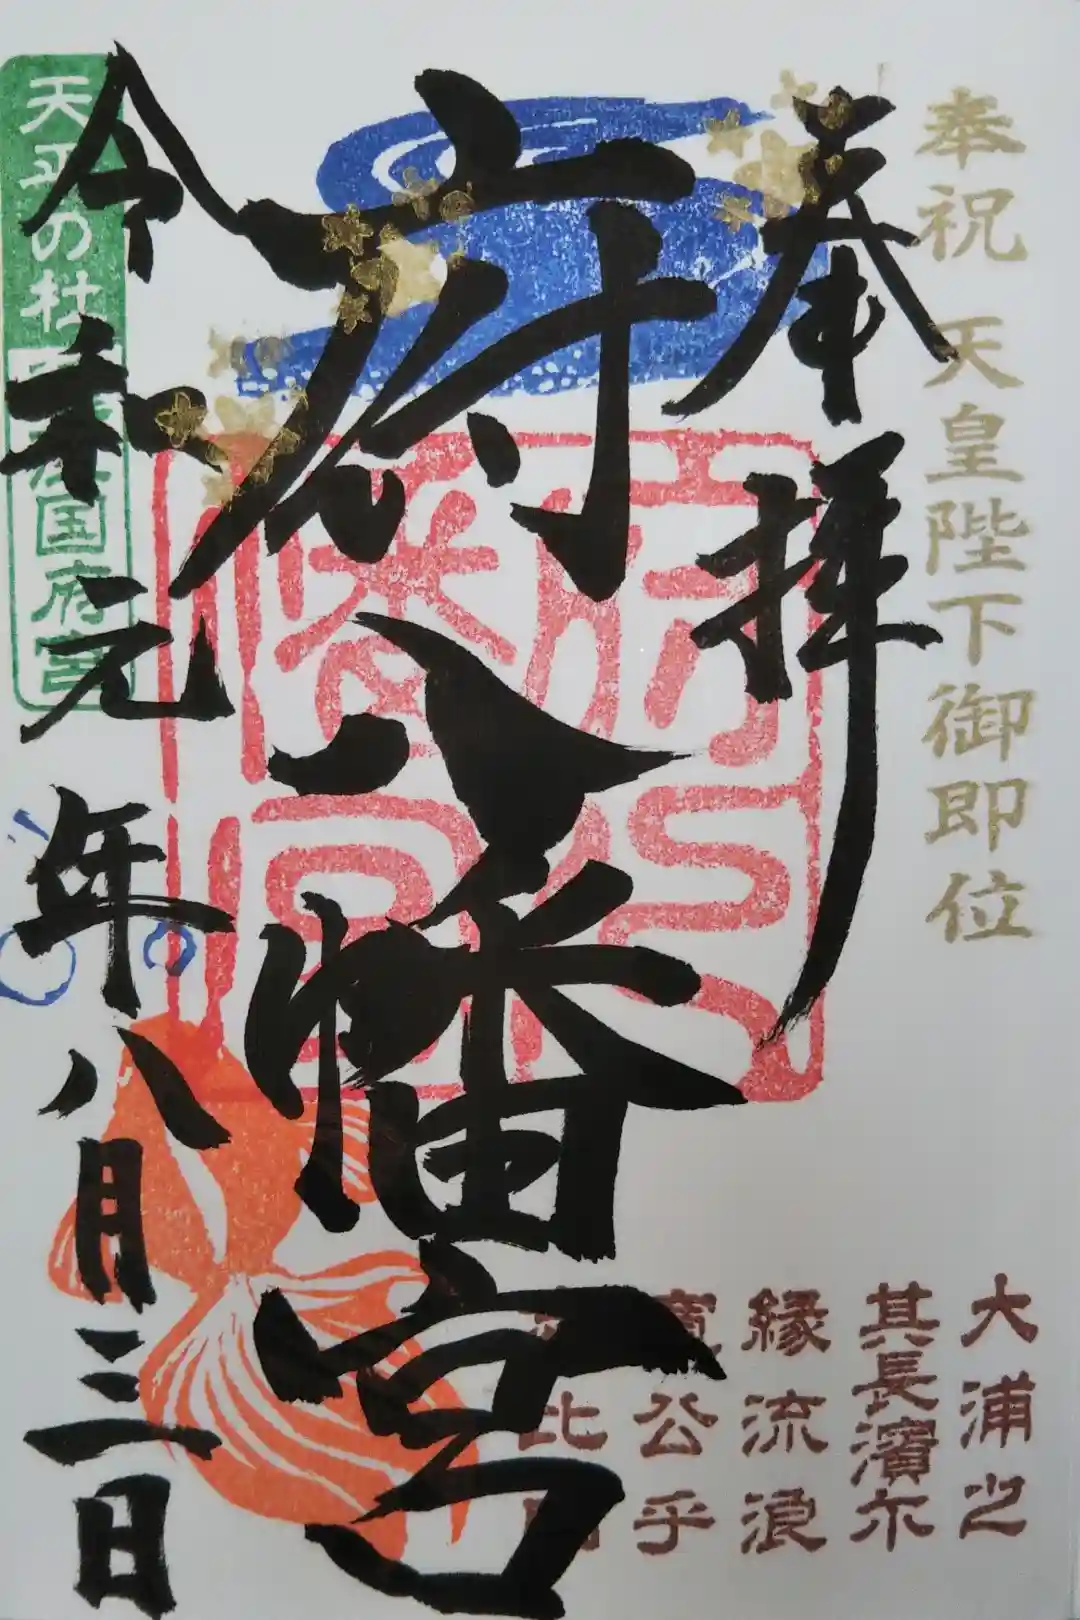 奉祝 天皇陛下御即位
奉拝
府八幡宮
令和元年八月三日
天平の杜
国府宮
府八幡宮
大浦之
其長濱尓
縁流浪
寛公乎
比